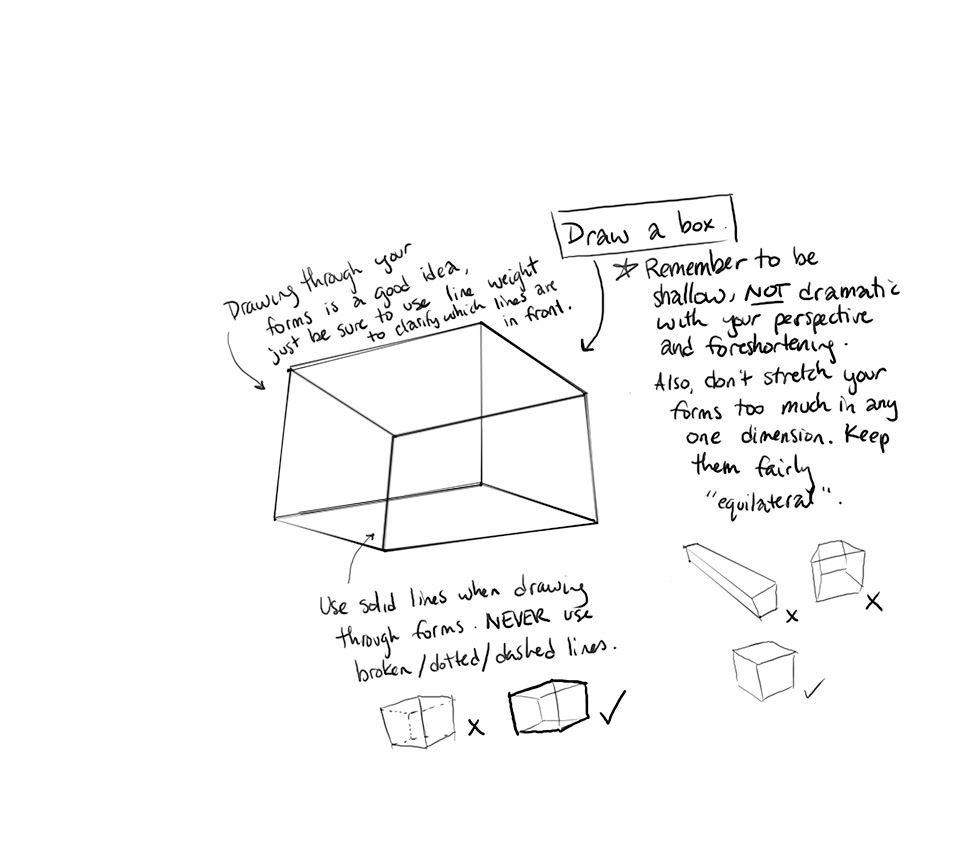 Draw a box.
Drawing through your
forms is a good idea,
just be sure to use line weight
to clarify which lines are
in front.
Remember to be
shallow, NOT dramatic
with your perspective
and foreshortening.
Also, don't stretch your
forms too much in any
one dimension. Keep
them fairly
"equilateral".
Use solid lines when drawing
through forms. NEVER use
broken/dotted/dashed lines.